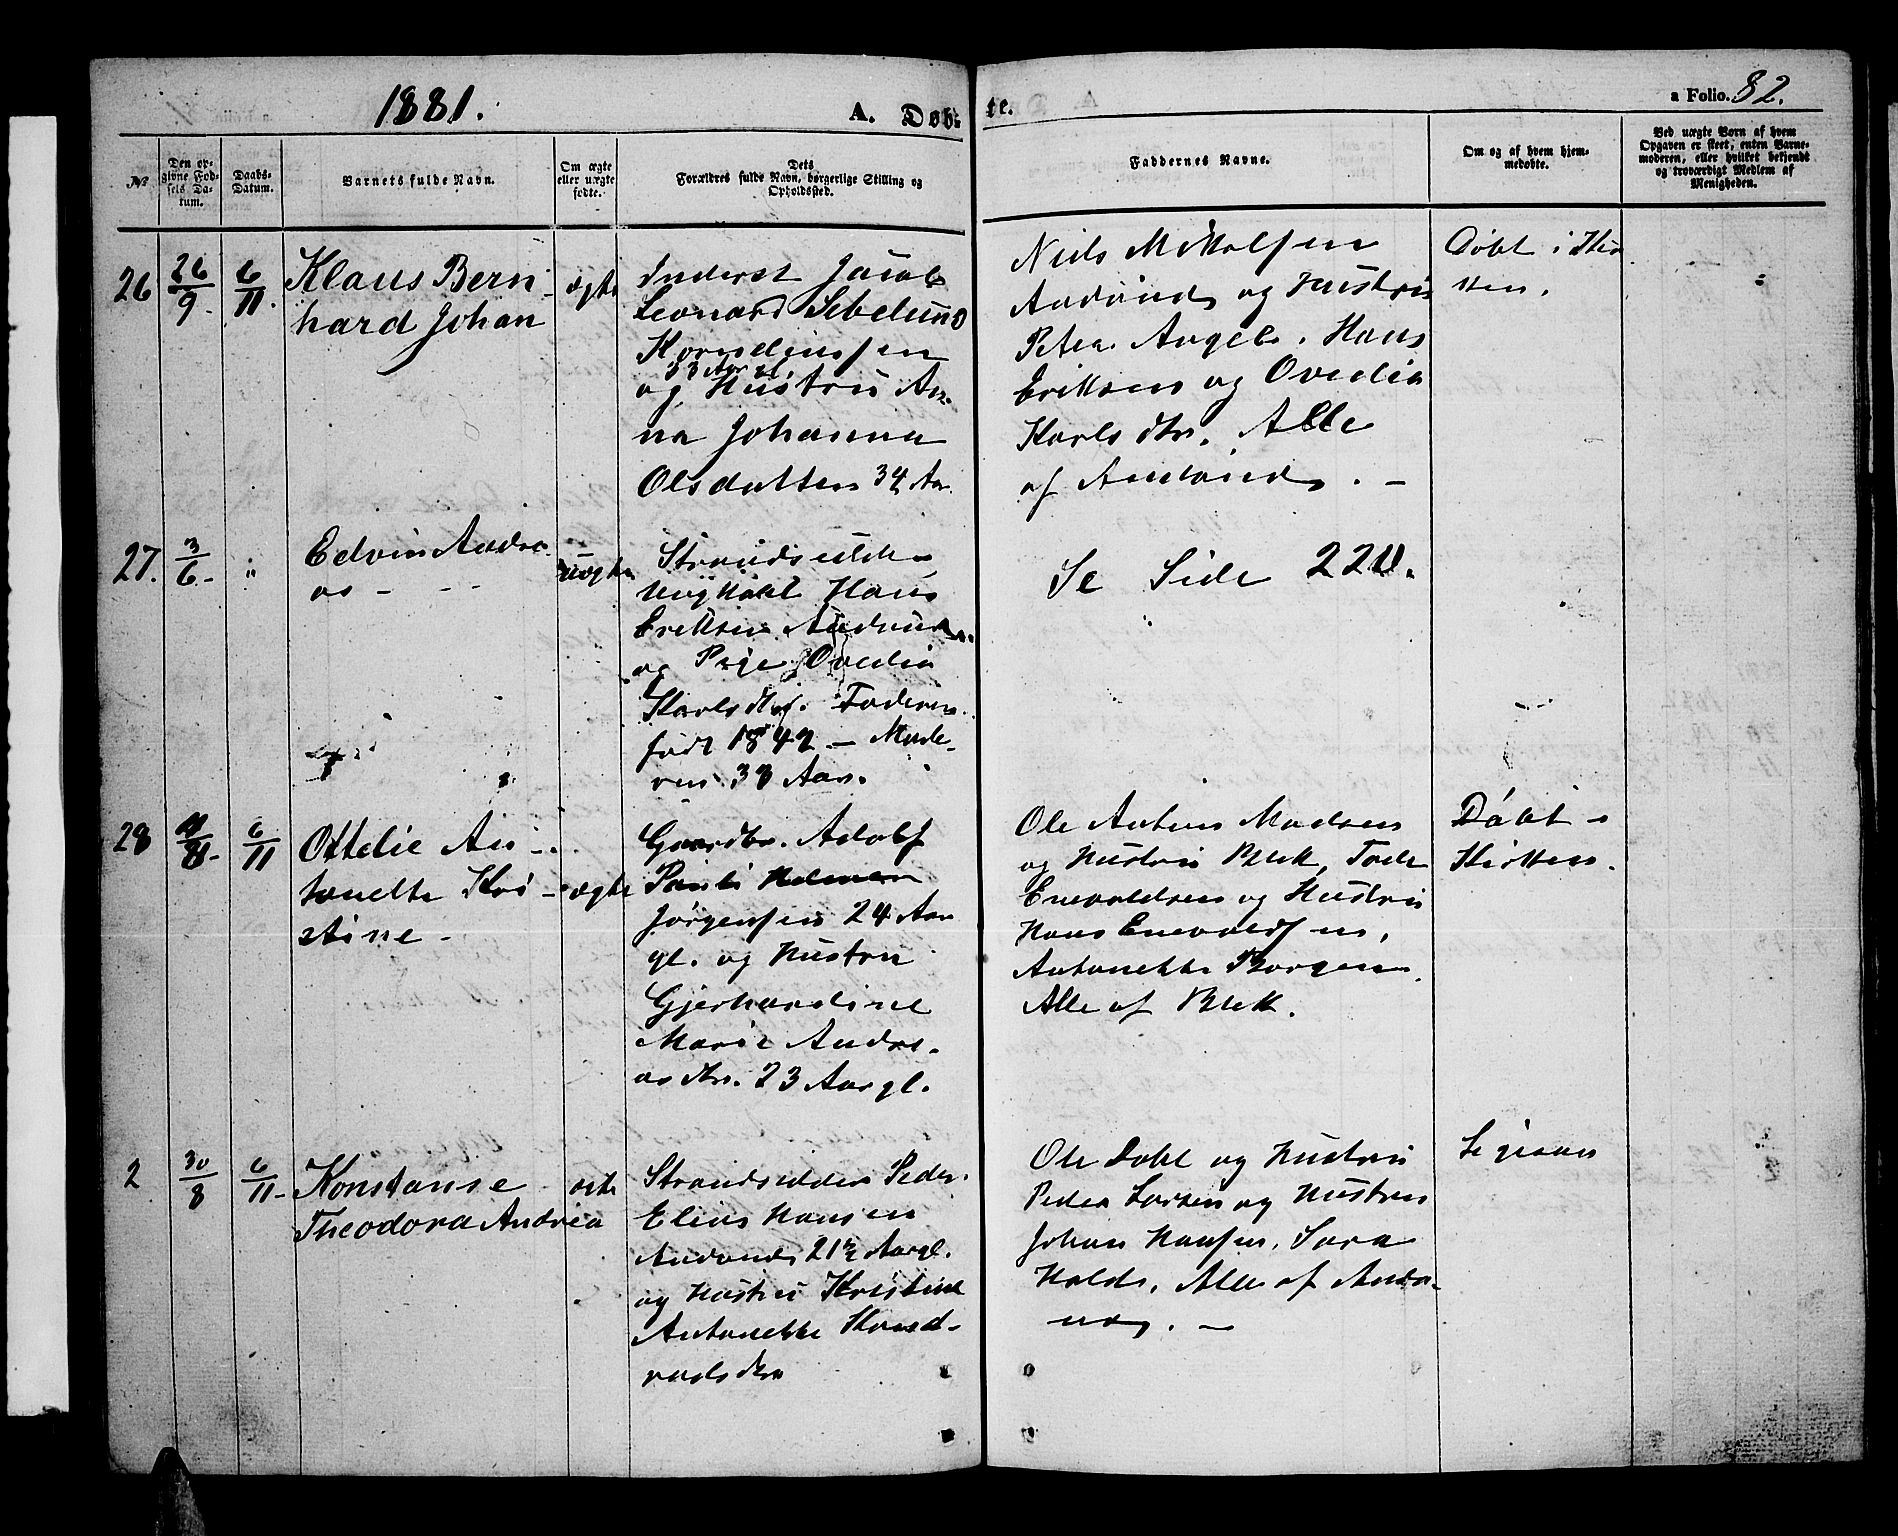 1881.
A. Døb-
te.
a Folio. 82.
No
Den op-
givne Fød-
sels Da-
tum.
Daabs-
Datum.
Barnets fulde Navn.
Om ægte
eller uægte
fødte.
Dets
Forældres fulde Navn, borgerlige Stilling og
Opholdssted.
Faddernes Navne.
Om og af hvem hjem-
medøbte.
Ved uægte Born af hvem
Opgaven er skeet, enten Barne-
moderen, eller hvilket bekjendt
og troværdigt Medlem af
Menigheden.
26
26/9.
6/11.
Klaus Bern-
hard Johan
ægte
Inderst Jacob
Leonard Sebelund
Korneliussen
33 Aar gl
og Hustru An-
na Johanna
Olsdatter 34 Aar
Niels Mikkelsen
og Hustru
Peter Angel, Hans
Eriksen og Ovedia
Karlsdtr. Alle
af
Døbt i Kir
ken.
27.
3/6.
"
Edvin Andre-
as - - -
uægte
Strandsidder
Hans
Eriksen
og Pige Ovedia
Karlsdtr. Faderen
født 1842 - Mode-
ren 33 Aar.
Se Side 220.
28
6/11
Ottelie An-
tonette Kri-
stine -
ægte
Gaardbr. Adolf
Jørgensen 24 Aar
gl. og Hustru
Gjerhardine
Marie Andre-
asdtr. 23 Aar gl.
Ole Antin Madsen
og Hustru Blek, Tode
Enevoldsen og Hustru
Hans Enevoldsen,
Antonette Borgen
Alle af Blek.
Døbt i
Kirken.
2
30/8
6/11-
Konstanse
Theodora Andrea
ægte
Strandsidder Peder
Elias Hansen
21½ Aar gl.
og Hustru Kristine
Antonette Kond-
radsdtr
Ole Dahl og Hustru
Peder Larsen og Hustru
Johan Hansen, Sara
Holds, Alle af